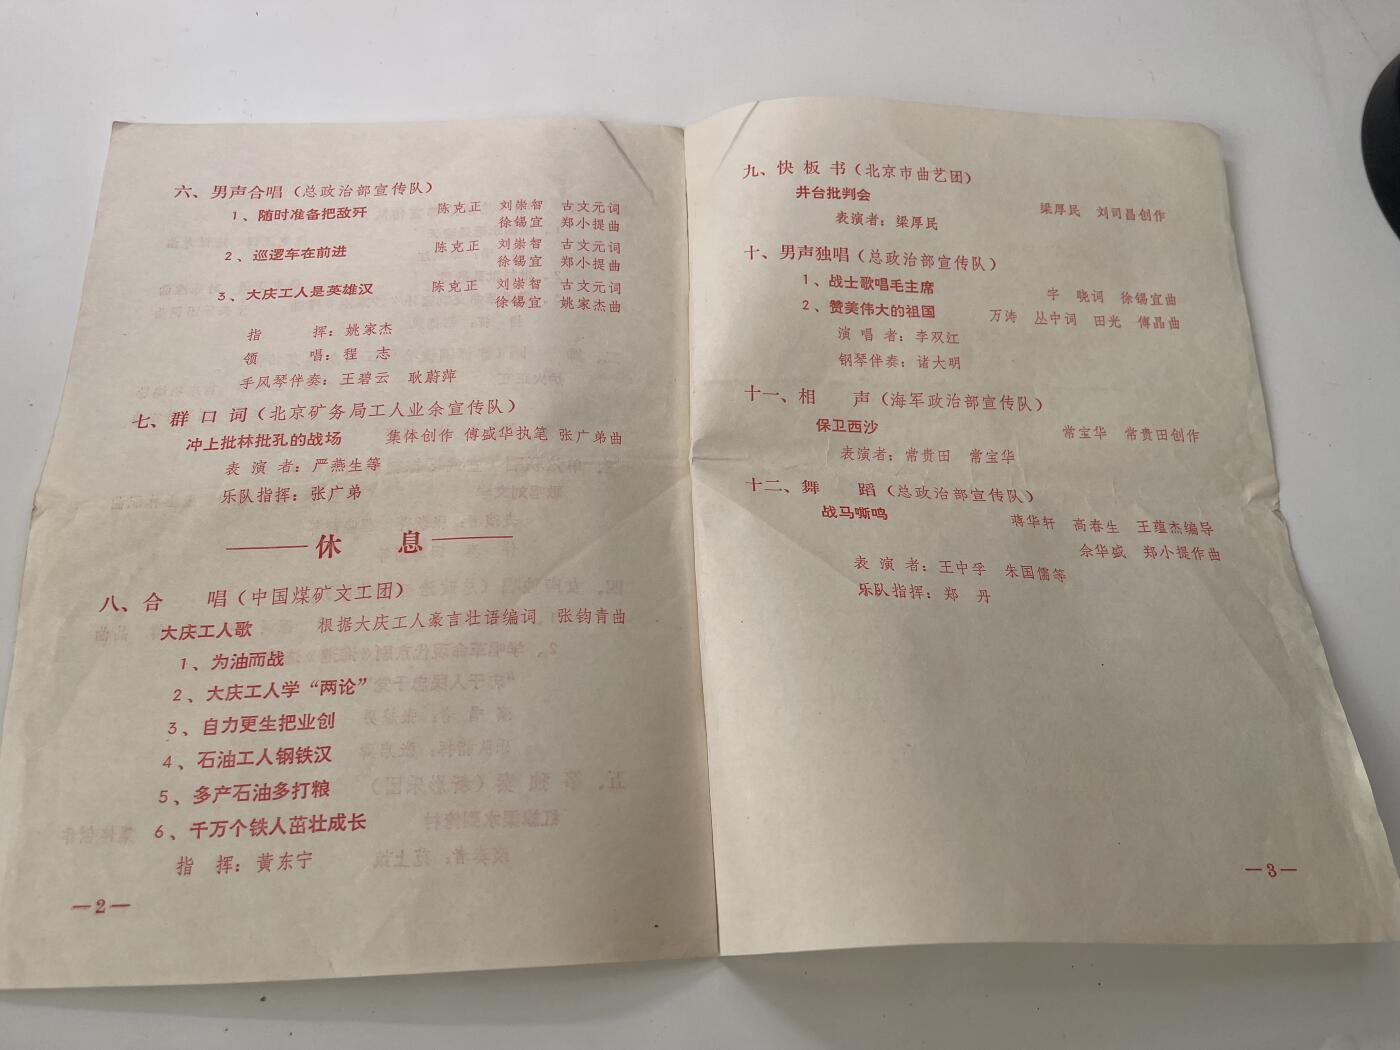 六、男声合唱（总政治部宣传队）
1、随时准备把敌歼 陈克正 刘崇智 古文元词
徐锡宜 郑小提曲
2、巡逻车在前进 陈克正 刘崇智 古文元词
徐锡宜 郑小提曲
3、大庆工人是英雄汉 陈克正 刘崇智 古文元词
徐锡宜 姚家杰曲
指 挥：姚家杰
领 唱：程 志
手风琴伴奏：王碧云 耿蔚萍
七、群口词（北京矿务局工人业余宣传队）
冲上批林批孔的战场 集体创作 傅盛华执笔 张广弟曲
表演者：严燕生等
乐队指挥：张广弟
休 息
八、合 唱（中国煤矿文工团）
大庆工人歌 根据大庆工人豪言壮语编词 张钧青曲
1、为油而战
2、大庆工人学“两论”
3、自力更生把业创
4、石油工人钢铁汉
5、多产石油多打粮
6、千万个铁人茁壮成长
指 挥：黄东宁
—2—
九、快板书（北京市曲艺团）
井台批判会
梁厚民 刘司昌创作
表演者：梁厚民
十、男声独唱（总政治部宣传队）
1、战士歌唱毛主席 宇 晓词 徐锡宜曲
2、赞美伟大的祖国 万涛 丛中词 田光 傅晶曲
演 唱 者：李双江
钢琴伴奏：诸大明
十一、相 声（海军政治部宣传队）
保卫西沙 常宝华 常贵田创作
表演者：常贵田 常宝华
十二、舞 蹈（总政治部宣传队）
战马嘶鸣 蒋华轩 高春生 王蕴杰编导
佘华盛 郑小提作曲
表 演 者：王中孚 朱国儒等
乐队指挥：郑 丹
—3—